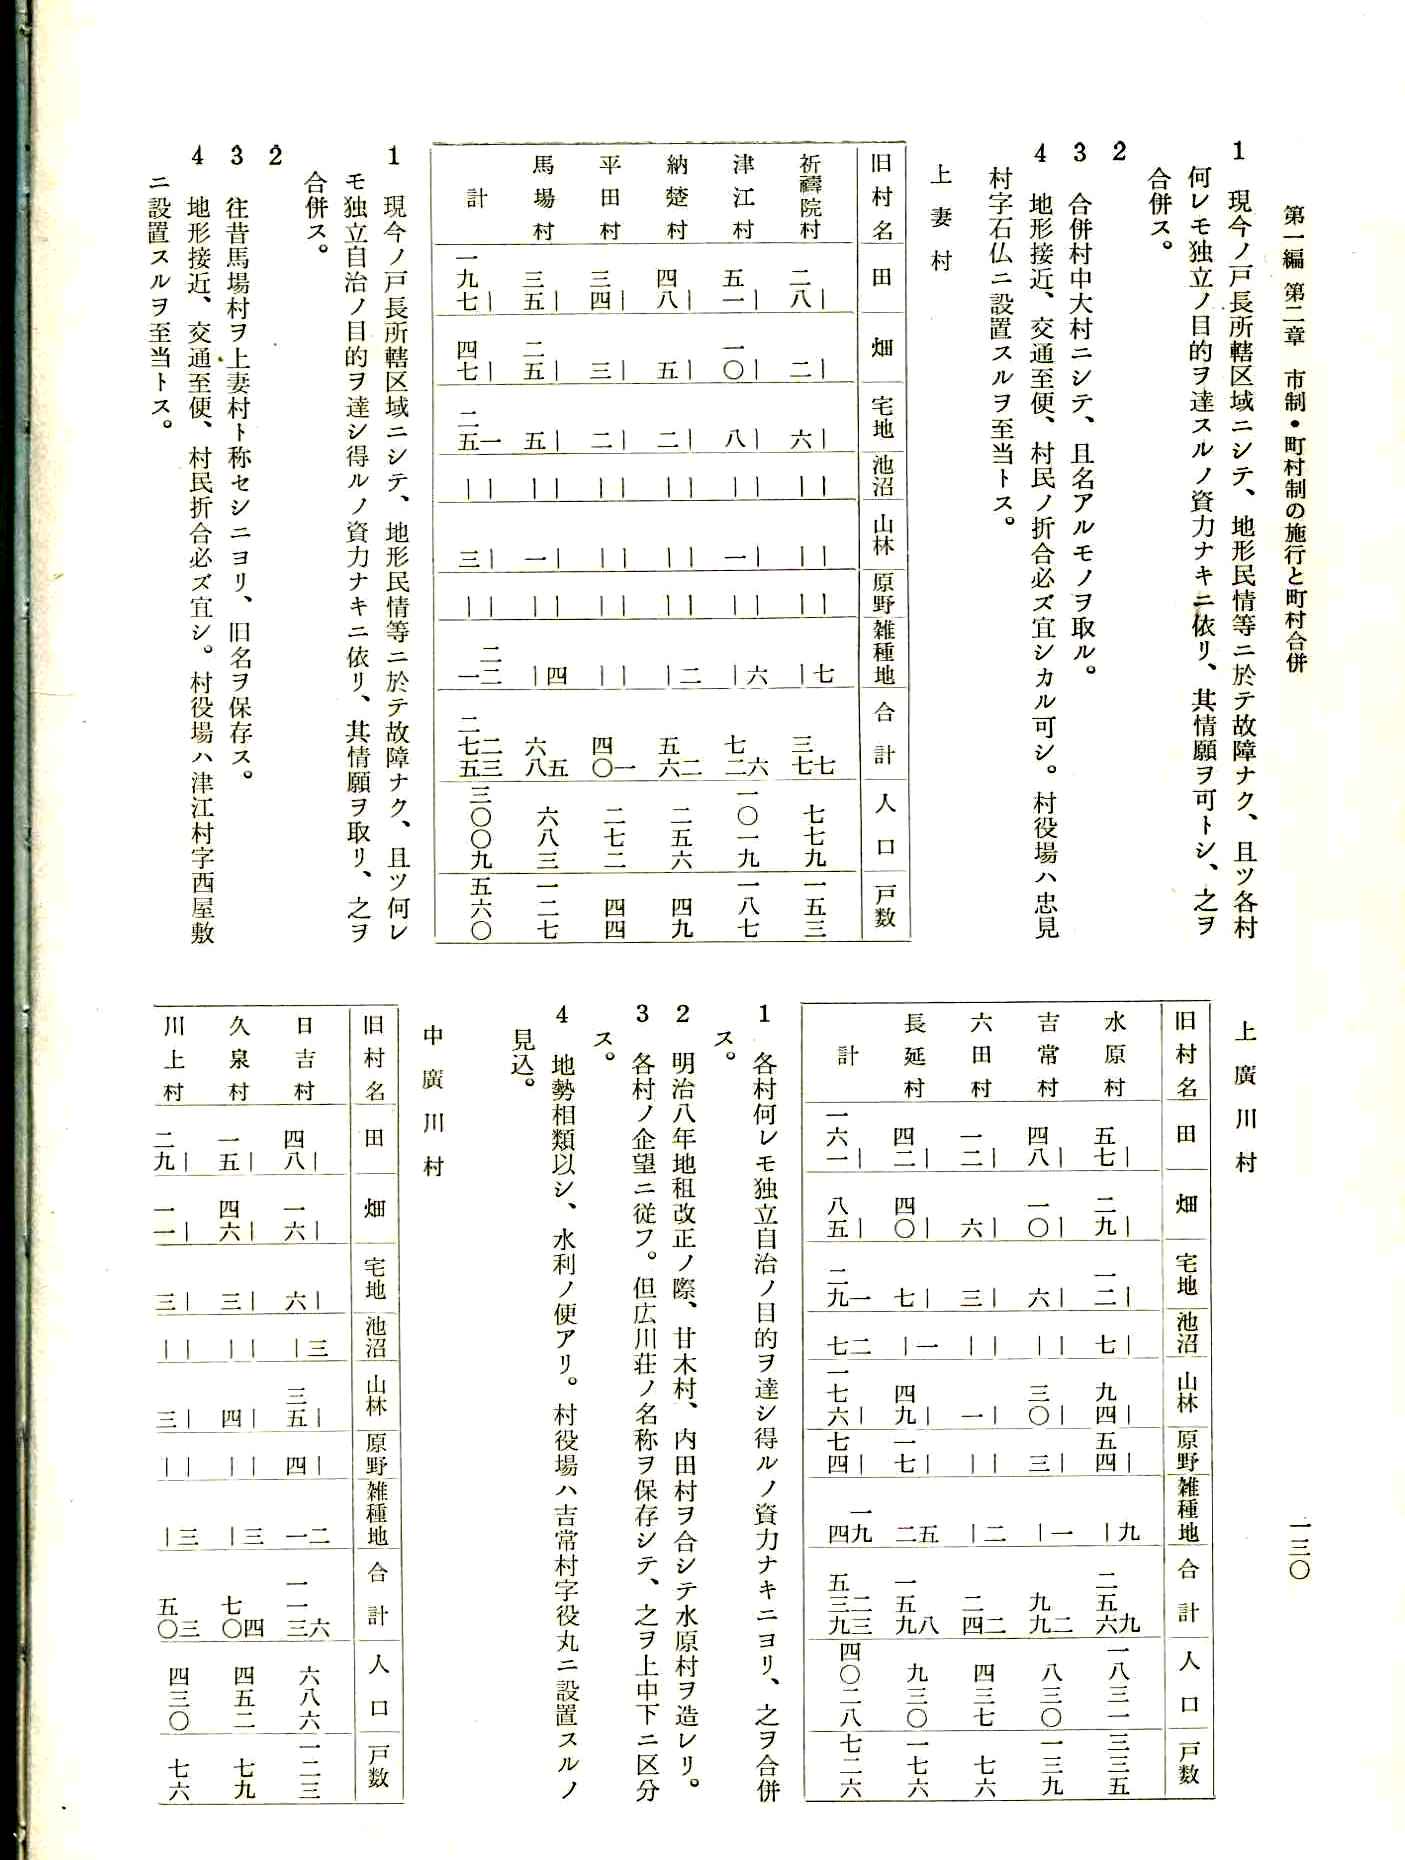 第一編 第二章 市制・町村制の施行と町村合併
一三〇
1 現今ノ戸長所轄区域ニシテ、地形民情等ニ於テ故障ナク、且ツ各村
何レモ独立ノ目的ヲ達スルノ資力ナキニ依リ、其情願ヲ可トシ、之ヲ
合併ス。
2
3 合併村中大村ニシテ、且名アルモノヲ取ル。
4 地形接近、交通至便、村民ノ折合必ズ宜シカル可シ。村役場ハ忠見
村字石仏ニ設置スルヲ至当トス。
上妻村
旧村名 田 畑 宅地 池沼 山林 原野 雑種地 合計 人口 戸数
祈禱院村 二八｜ 二｜ 六｜ ｜｜ ｜｜ ｜｜ ｜七 三七七 七七九 一五三
津江村 五一｜ 一〇｜ 八｜ ｜｜ 一｜ ｜｜ ｜六 七二六 一〇一九 一八七
納楚村 四八｜ 五｜ 二｜ ｜｜ ｜｜ ｜｜ ｜二 五六二 二五六 四九
平田村 三四｜ 三｜ 二｜ ｜｜ ｜｜ ｜｜ ｜｜ 四〇一 二七二 四四
馬場村 三五｜ 二五｜ 五｜ ｜｜ 一｜ ｜｜ ｜四 六八五 六八三 一二七
計 一九七｜ 四七｜ 二五一 ｜｜ 三｜ ｜｜ 一二二 二七五二三 三〇〇九 五六〇
1 現今ノ戸長所轄区域ニシテ、地形民情等ニ於テ故障ナク、且ツ何レ
モ独立自治ノ目的ヲ達シ得ルノ資力ナキニ依リ、其情願ヲ取リ、之ヲ
合併ス。
2
3 往昔馬場村ヲ上妻村ト称セシニヨリ、旧名ヲ保存ス。
4 地形接近、交通至便、村民折合必ズ宜シ。村役場ハ津江村字西屋敷
ニ設置スルヲ至当トス。
上廣川村
旧村名 田 畑 宅地 池沼 山林 原野 雑種地 合計 人口 戸数
水原村 五七｜ 二九｜ 一二｜ 七｜ 九四｜ 五四｜ ｜九 二五六九 一八三一 三三五
吉常村 四八｜ 一〇｜ 六｜ ｜｜ 三〇｜ 三｜ ｜一 九九二 八三〇 一三九
六田村 一二｜ 六｜ 三｜ ｜｜ 一｜ ｜｜ ｜二 二四二 四三七 七六
長延村 四二｜ 四〇｜ 七｜ ｜一 四九｜ 一七｜ 二五 一五九八 九三〇 一七六
計 一六一｜ 八五｜ 二九一 七二 一七六｜ 七四｜ 四一九 五三九二三 四〇二八 七二六
1 各村何レモ独立自治ノ目的ヲ達シ得ルノ資力ナキニヨリ、之ヲ合併
ス。
2 明治八年地租改正ノ際、甘木村、内田村ヲ合シテ水原村ヲ造レリ。
3 各村ノ企望ニ従フ。但広川荘ノ名称ヲ保存シテ、之ヲ上中下ニ区分
ス。
4 地勢相類以シ、水利ノ便アリ。村役場ハ吉常村字役丸ニ設置スルノ
見込。
中廣川村
旧村名 田 畑 宅地 池沼 山林 原野 雑種地 合計 人口 戸数
日吉村 四八｜ 一六｜ 六｜ ｜三 三五｜ 四｜ 一二 一一三六 六八六 一二三
久泉村 一五｜ 四六｜ 三｜ ｜｜ 四｜ ｜｜ ｜三 七〇四 四五二 七九
川上村 二九｜ 一一｜ 三｜ ｜｜ 三｜ ｜｜ ｜三 五〇三 四三〇 七六